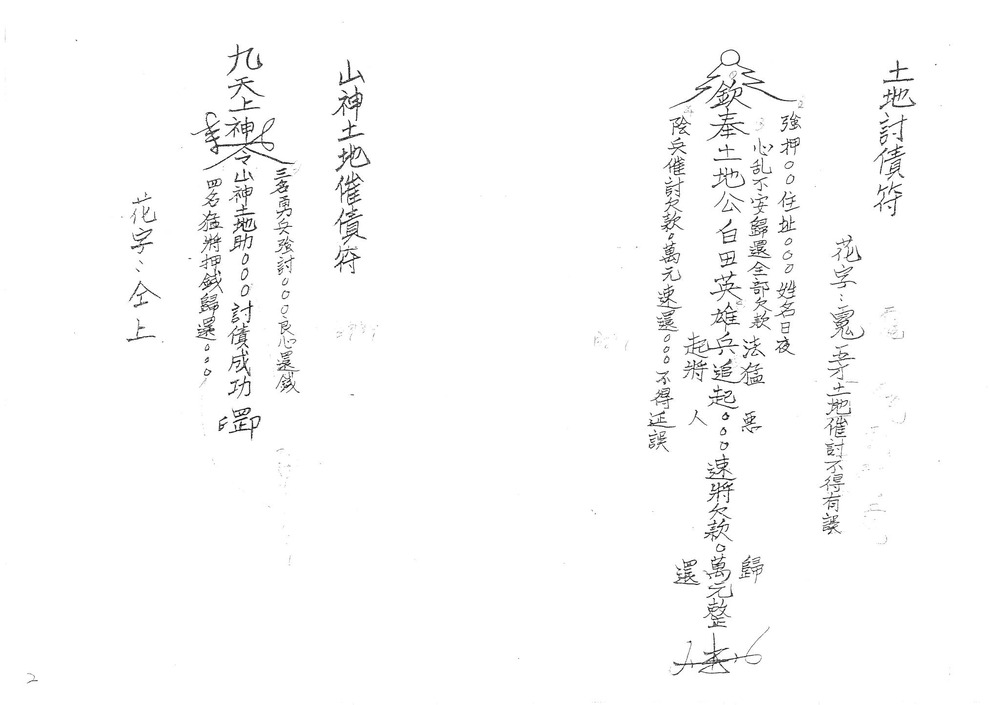 土地討債符
花字：寬吾才土地催討不得有誤
強押○○住址○○○姓名日夜
心乱不安歸還全部欠款
欽奉土地公白田英雄兵追起○○○速將欠款○萬元整
法猛 惡
起將 人
歸
還
陰兵催討欠款○萬元速還○○○不得延誤
山神土地催債符
三名勇兵強討○○○良心還錢
九天上神令山神土地助○○○討債成功
四名猛將押錢歸還○○○
花字：仝上
2